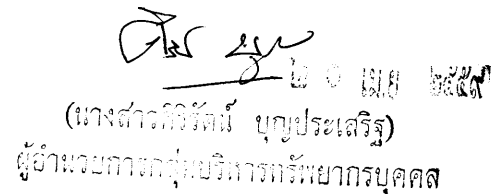 ๒๐ เม.ย. ๒๕๕๙
(นางสาวศิริรัตน์ บุญประเสริฐ)
ผู้อำนวยการกลุ่มบริหารทรัพยากรบุคคล